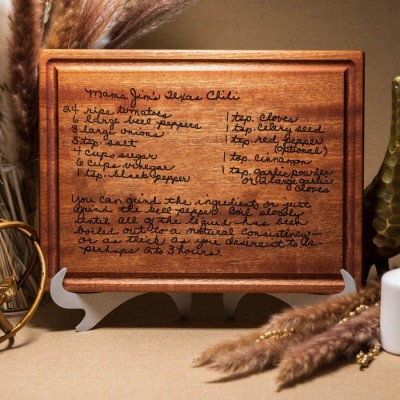 Mama Jim's Texas Chili
24 ripe tomatoes
6 large bell peppers
8 large onions
5 tsp. salt
4 cups sugar
6 cups vinegar
1 tsp. black pepper
1 tsp. cloves
1 tsp. celery seed
1 tsp. red pepper
(optional)
1 tsp. cinnamon
1 tsp. garlic powder
or 2 large garlic
cloves
You can grind the ingredients or just
grind the bell pepper. Boil slowly
until all of the liquid has been
boiled out to a natural consistency—
or as thick as you desire it to be
perhaps 2 to 3 hours.